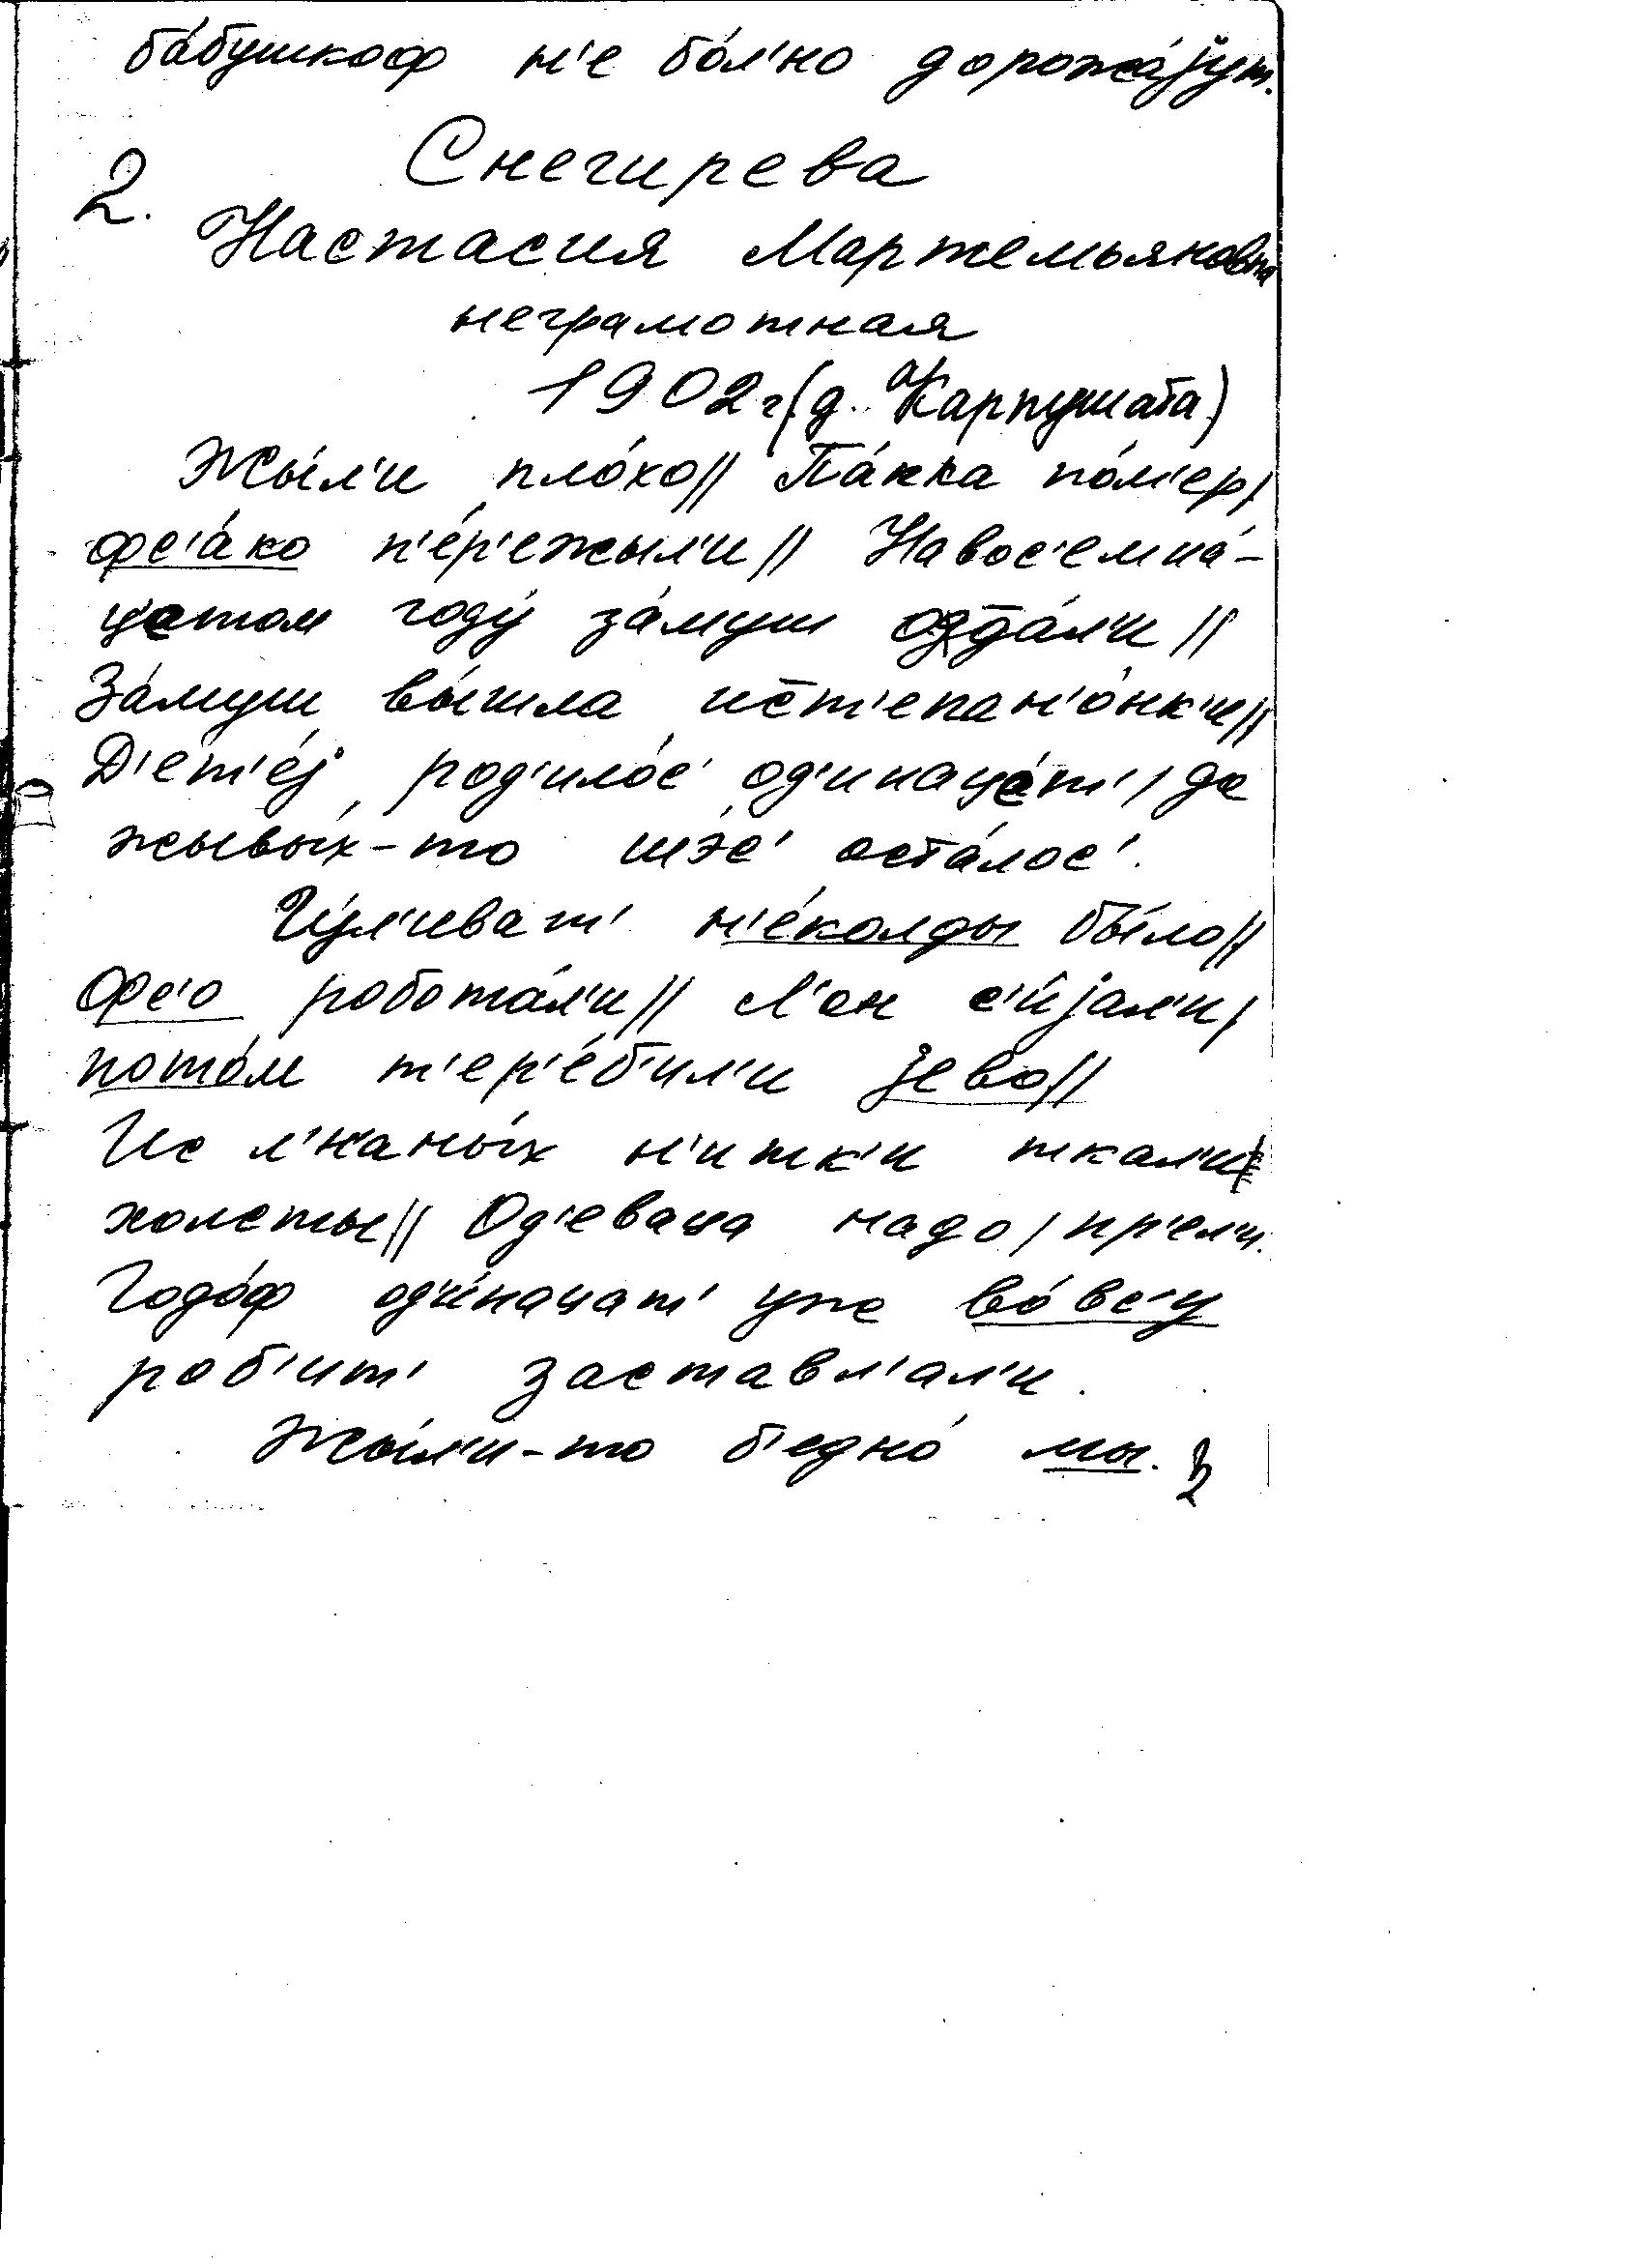 ба́бушкоф н'е бо́л'но дорожа́jут.
Снегирева
2.
Настасия Мартемьяновна
неграмотная
1902 г. (д. Карпушата)
Жы́л'и пло́хо // Па́пка по́м'ер /
фс'а́ко п'е́р'ежыл'и // На вос'емна́-
цетом году́ за́муш одда́л'и //
За́муш вы́шла ис̄т'епан'о́нк'и //
Д'ет'е́j род'ило́с' од'инацет' / да
жывы́х-то шэс' оста́лос'.
Гу́л'иват' н'е́колды бы́ло //
Фс'о робота́л'и // Л'он с'и́jал'и /
пото́м т'ер'е́б'ил'и јево //
Ис л'наны́х н'итк'и ткал'и
холсты // Од'еваца надо / пр'ел'и.
Годо́ф од'и́нацат' уже во́вс'у
роб'ит' заставл'ал'и.
Жы́л'и-то б'едно́ мы.